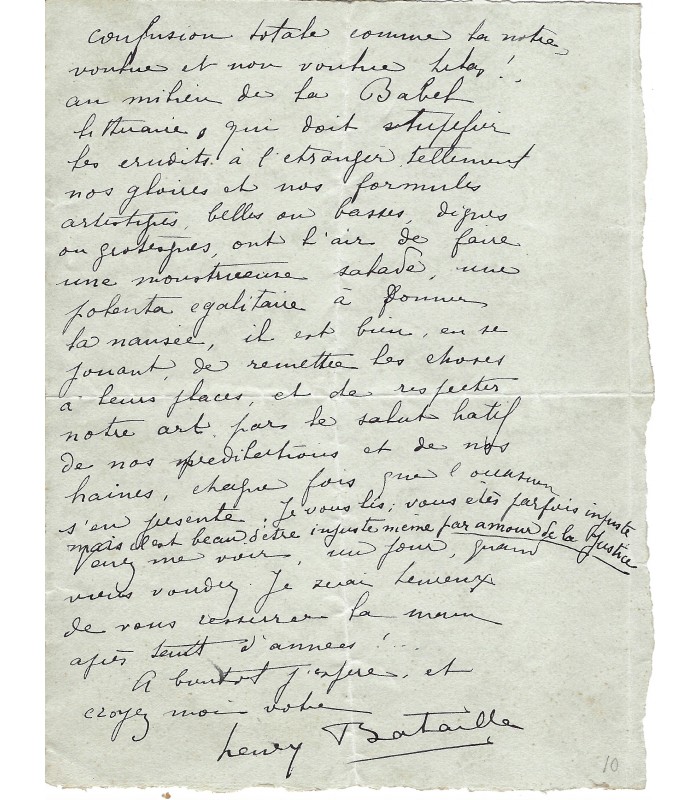 confusion totale comme la notre,
voulue et non voulue hélas !,
au milieu de la Babel
littéraire, qui doit stupéfier
les erudits à l'etranger tellement
nos gloires et nos formules
artistiques, belles ou basses, dignes
ou grotesques, ont l'air de faire
une monstrueuse salade, une
potenta egalitaire à donner
la nausée, il est bien, en se
jouant, de remettre les choses
a leurs places, et de respecter
notre art par le salut hatif
de nos predilections et de nos
haines, chaque fois que l'occasion
s'en presente. Je vous lis ; vous êtes parfois injuste
mais c'est beau d'être injuste même par amour de la Justice
Venez me voir, un jour, quand
vous voudrez. Je serai heureux
de vous resserrer la main
après tant d'années !...
A bientot j'espere, et
croyez moi votre
Henry Bataille
10